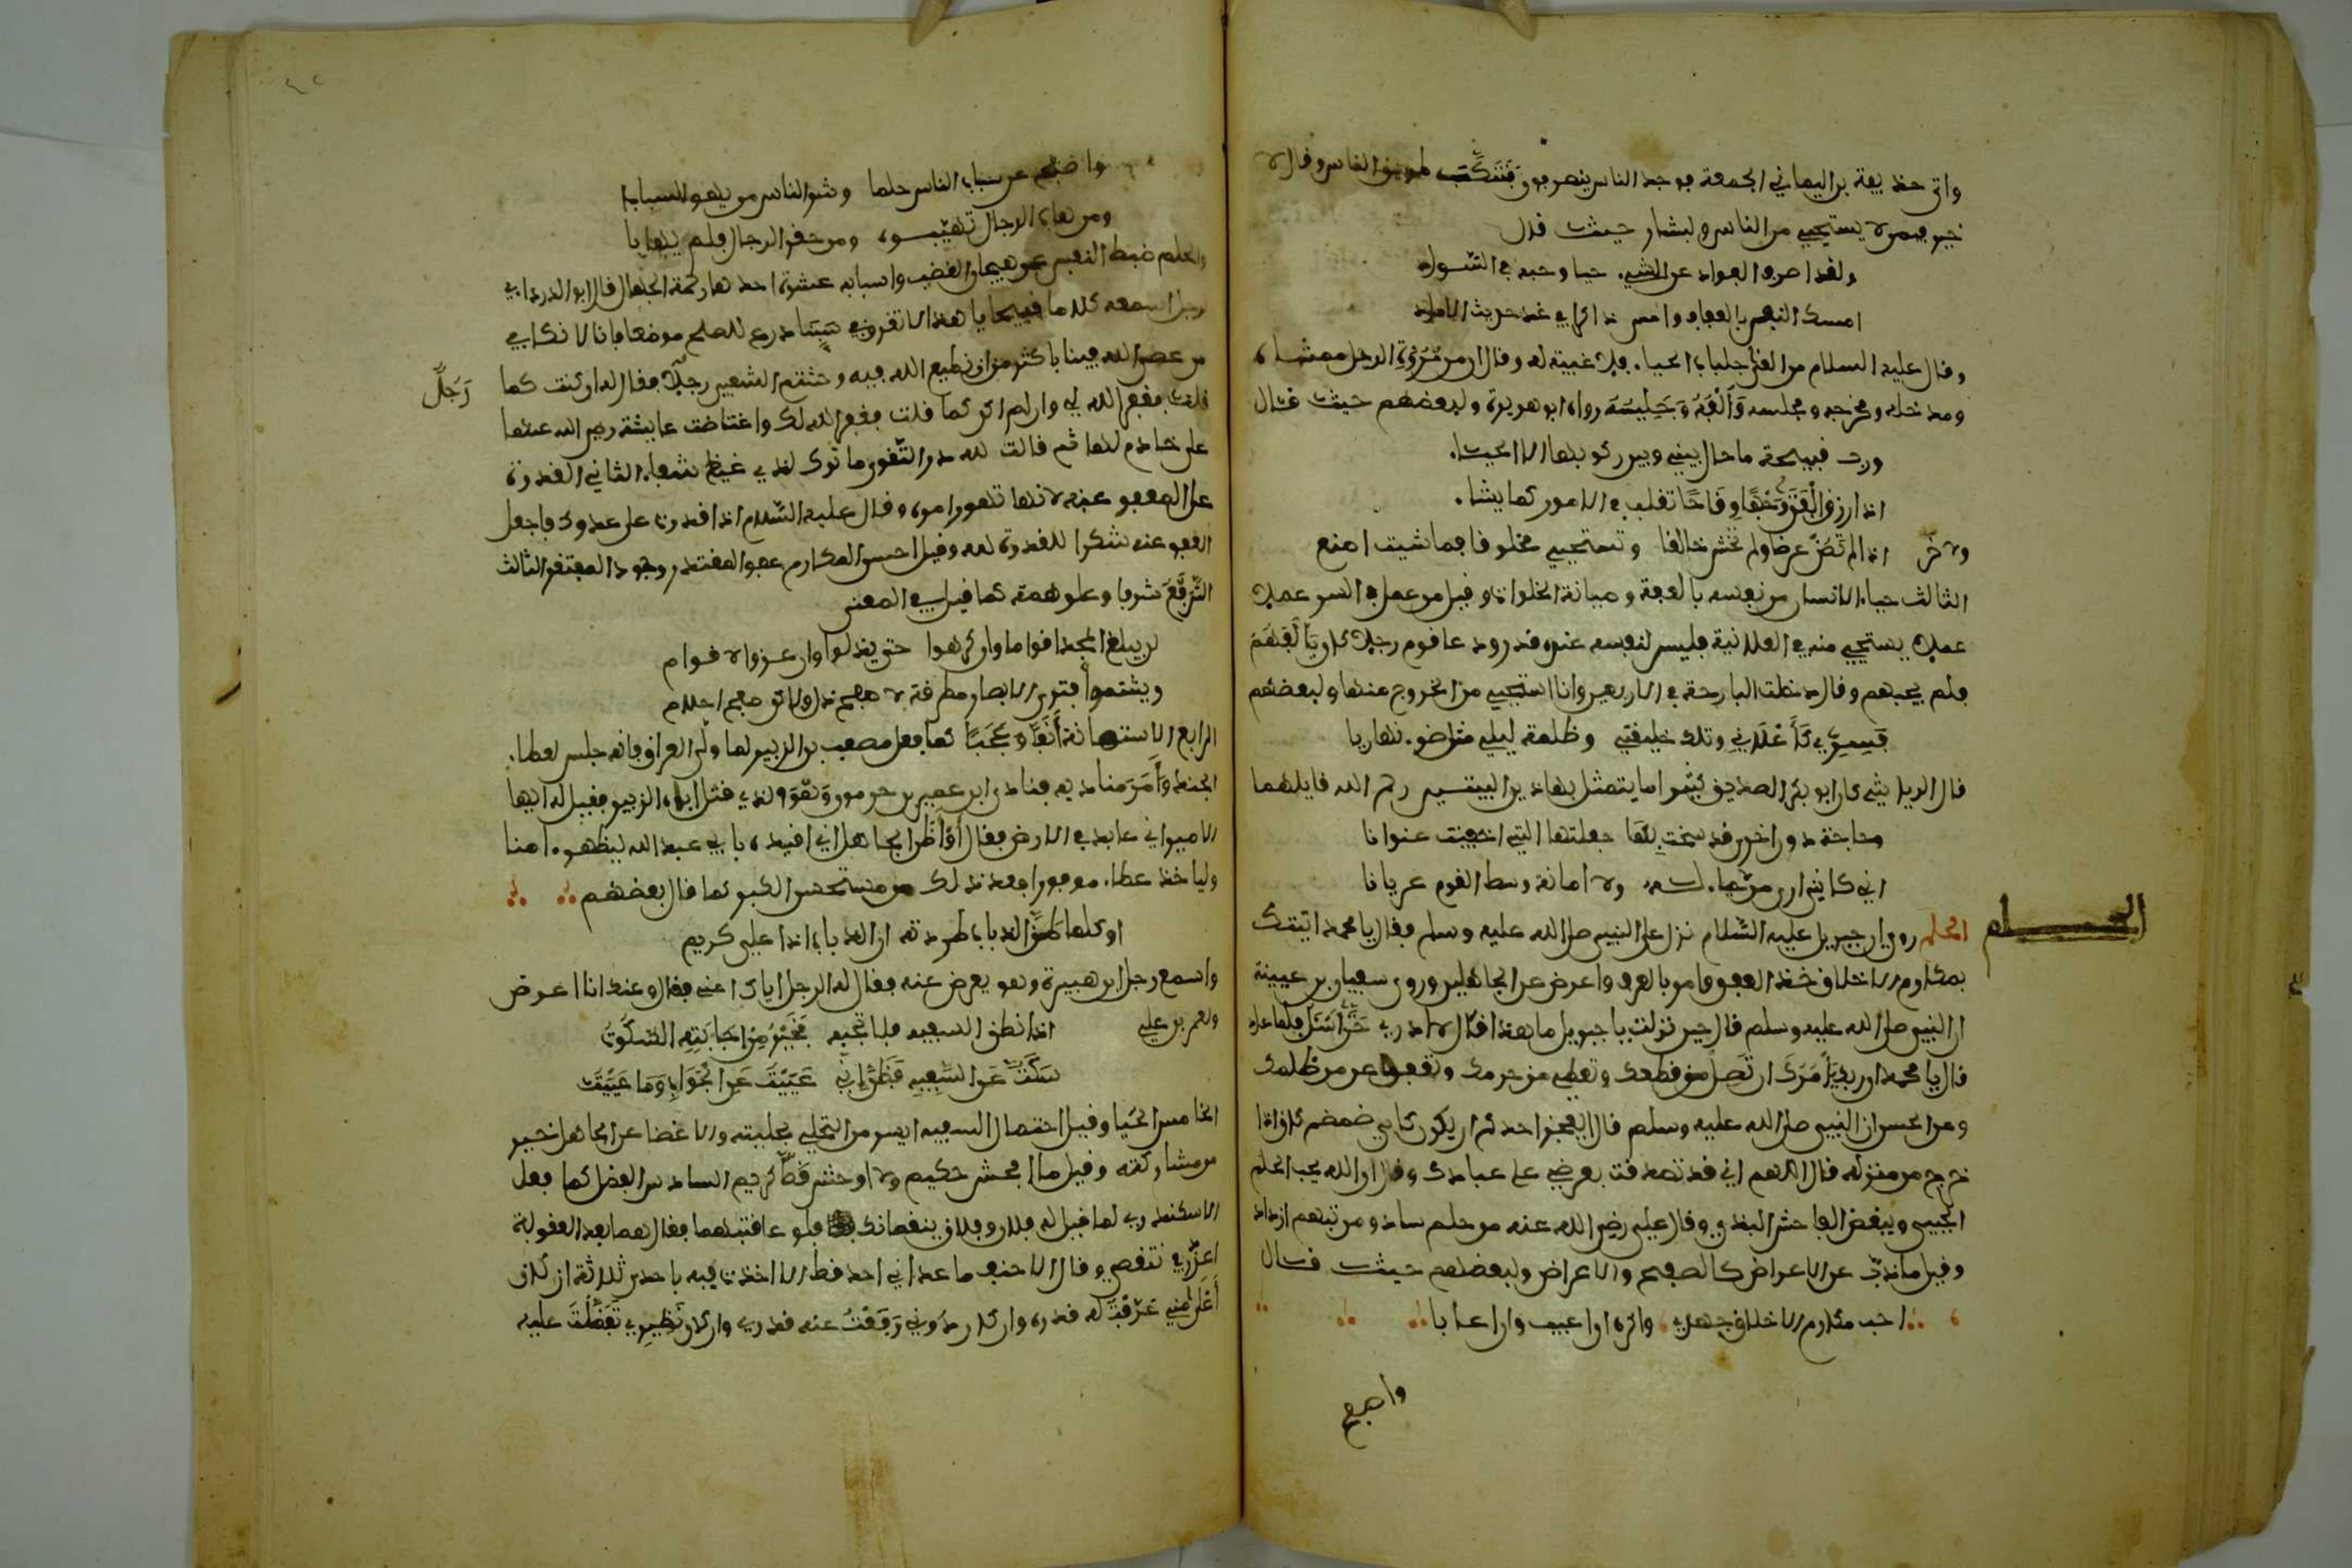 واتى حذيفة بن اليمان الجمعة فوجد الناس ينصرفون فتنكب طريق الناس وقال لا
خير فيمن لا يستحيي من الناس ولبشار حيث قال
ولقد اصرف الفواد عن الشيء حيا وحبه في السواد
امسك النفس بالعفاف وامسي ذاكرا في غد حديث الاعادي
وقال عليه السلام من القى جلباب الحيا فلا غيبة له وقال ان من مروة الرجل ممشاه
ومدخله ومخرجه ومجلسه وإلفه وجليسه رواه ابو هريرة ولبعضهم حيث قال
ورب قبيحة ما حال بيني وبين ركوبها الا الحياء
اذا رزق الفتى وجها وقاحا تقلب في الامور كما يشاء
ولاخر اذا لم تصن عرضا ولم تخش خالقا وتستحيي مخلوقا فما شيت اصنع
الثالث حيا الانسان من نفسه بالعفة وصيانة الخلوات وقيل من عمل في السر عملا
عملا يستحيي منه في العلانية فليس لنفسه عنده قدر ودعا قوم رجلا كان يألفهم
فلم يجبهم وقال دخلت البارحة في الاربعين وانا استحيي من الخروج عندها ولبعضهم
فسري كإعلاني وتلك خليقتي وظلمة ليلي مثل ضوء نهاريا
قال الرياشي كان ابو بكر الصديق كثيرا ما يتمثل بهاذين البيتين رحم الله قايلهما
وحاجة دون اخرى قد سنحت بها جعلتها للتي اخفيت عنوانا
اني كاني ارى من لا حيا له ولا امانة وسط القوم عريانا
الحلم
الحلم روي ان جبريل عليه السلام نزل على النبي صلى الله عليه وسلم فقال يا محمد اتيتك
بمكارم الاخلاق خذ العفو وامر بالعرف واعرض عن الجاهلين وروى سفيان بن عيينة
ان النبي صلى الله عليه وسلم قال حين نزلت يا جبريل ما هذا قال لا ادري حتى اسئل فلما عاد
قال يا محمد ان ربك يأمرك ان تصل من قطعك وتعطي من حرمك وتعفو عن من ظلمك
وعن الحسن ان النبي صلى الله عليه وسلم قال ايعجز احدكم ان يكون كابي ضمضم كان اذا
خرج من منزله قال اللهم اني قد تصدقت بعرضي على عبادك وقال ان الله يحب الحليم
الحيي ويبغض الفاحش البذي وقال علي رضي الله عنه من حلم ساد ومن تفهم ازداد
وقيل ما ذب عن الاعراض كالصفح والاعراض ولبعضهم حيث قال
احب مكارم الاخلاق جهدي واكره ان اعيب وان اعابا
واصفح
واصفح عن سباب الناس حلما وشر الناس من يهوى السبابا
ومن هاب الرجال تهيبوه ومن حقر الرجال فلم يهابا
والحلم ضبط النفس عن هيجان الغضب واسبابه عشرة احدها رحمة الجهال قال ابو الدرداء في
رجل اسمعه كلاما قبيحا يا هذا لا تغرق في سبنا ودع للصلح موضعا فانا لا نكافي
من عصى الله فينا باكثر من ان نطيع الله فيه وشتم الشعبي رجلا فقال له ان كنت كما
رجل
قلت فغفر الله لي وان لم اكن كما قلت فغفر الله لك واغتاظت عايشة رضي الله عنها
على خادم لها ثم قالت لله در التقوى ما تركت لذي غيظ شفاء الثاني القدرة
على العفو عنه لانها تهور امره وقال عليه السلام اذا قدرت على عدوك فاجعل
العفو عنه شكرا للقدرة عليه وقيل احسن المكارم عفو المقتدر وجود المفتقر الثالث
الترفع شرفا وعلو همة كما قيل في المعنى
لن يبلغ المجد اقواما وان كرموا حتى يذلوا وان عزوا لاقوام
ويشتموا فترى الابصار مطرقة لا صفح ذل ولاكن صفح احلام
الرابع الاستهانة أنفا وعجبا كما فعل مصعب بن الزبير لما ولى العراق فانه جلس لعطاء
الجند وأمر مناديه فنادى اين عمير بن جرموز وهو الذي قتل اباه الزبير فقيل له ايها
الامير اني عابد في الارض فقال أوظن الجاهل اني اقيده بابي عبد الله ليظهر امنا
ولياخذ عطاه موفورا فعد ذلك من مستحسن الكبر كما قال بعضهم
اوكلما طن الذباب طردته ان الذباب اذا علي كريم
واسمع رجل ابن هبيرة وهو يعرض عنه فقال له الرجل اياك اعني فقال وعنك انا اعرض
ولعمر بن علي اذا نطق السفيه فلا تجبه فخير من اجابته السكوت
سكت عن السفيه فظن اني عييت عن الجواب وما عييت
الخامس الحيا وقيل احتمال السفيه ايسر من التحلي بحليته والاغضا عن الجاهل خير
من مشاركته وقيل ما افحش حكيم ولا اوحش قط كريم السادس الفضل كما فعل
الاسكندر لما قيل له فلان وفلان ينقصانك فلو عاقبتهما فقال هما بعد العقوبة
اعذر في تنقصي وقال الاحنف ما عاداني احد قط الا اخذت فيه باحدى ثلاثة ان كان
أعلى مني عرفت له قدره وان كان دوني رفعت عنه قدري وان كان نظيري تفضلت عليه